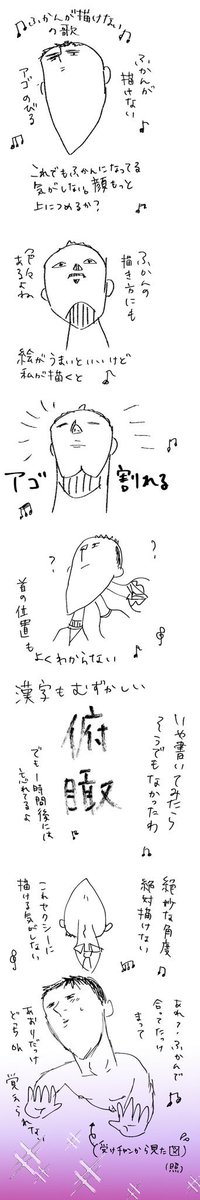 ふかんが描けない
の歌
ふかんが
描けない
アゴのびる
これでもふかんになってる
気がしない。顔もっと
上につめるか？
ふかんの
描き方にも
色々
あるよね
絵がうまいといいけど
私が描くと
アゴ 割れる
首の位置も
よくわからない
漢字もむずかしい
いや書いてみたら
そうでもなかったわ
俯瞰
でも1時間後には
忘れてるよ
絶妙な角度
絶対描けない
これセクシーに
描ける気がしない
あれ？ふかんで
合ってたっけ
まって
あおりだっけ
どっちoh
覚えられない
(受けチャンから見た図)
(照)